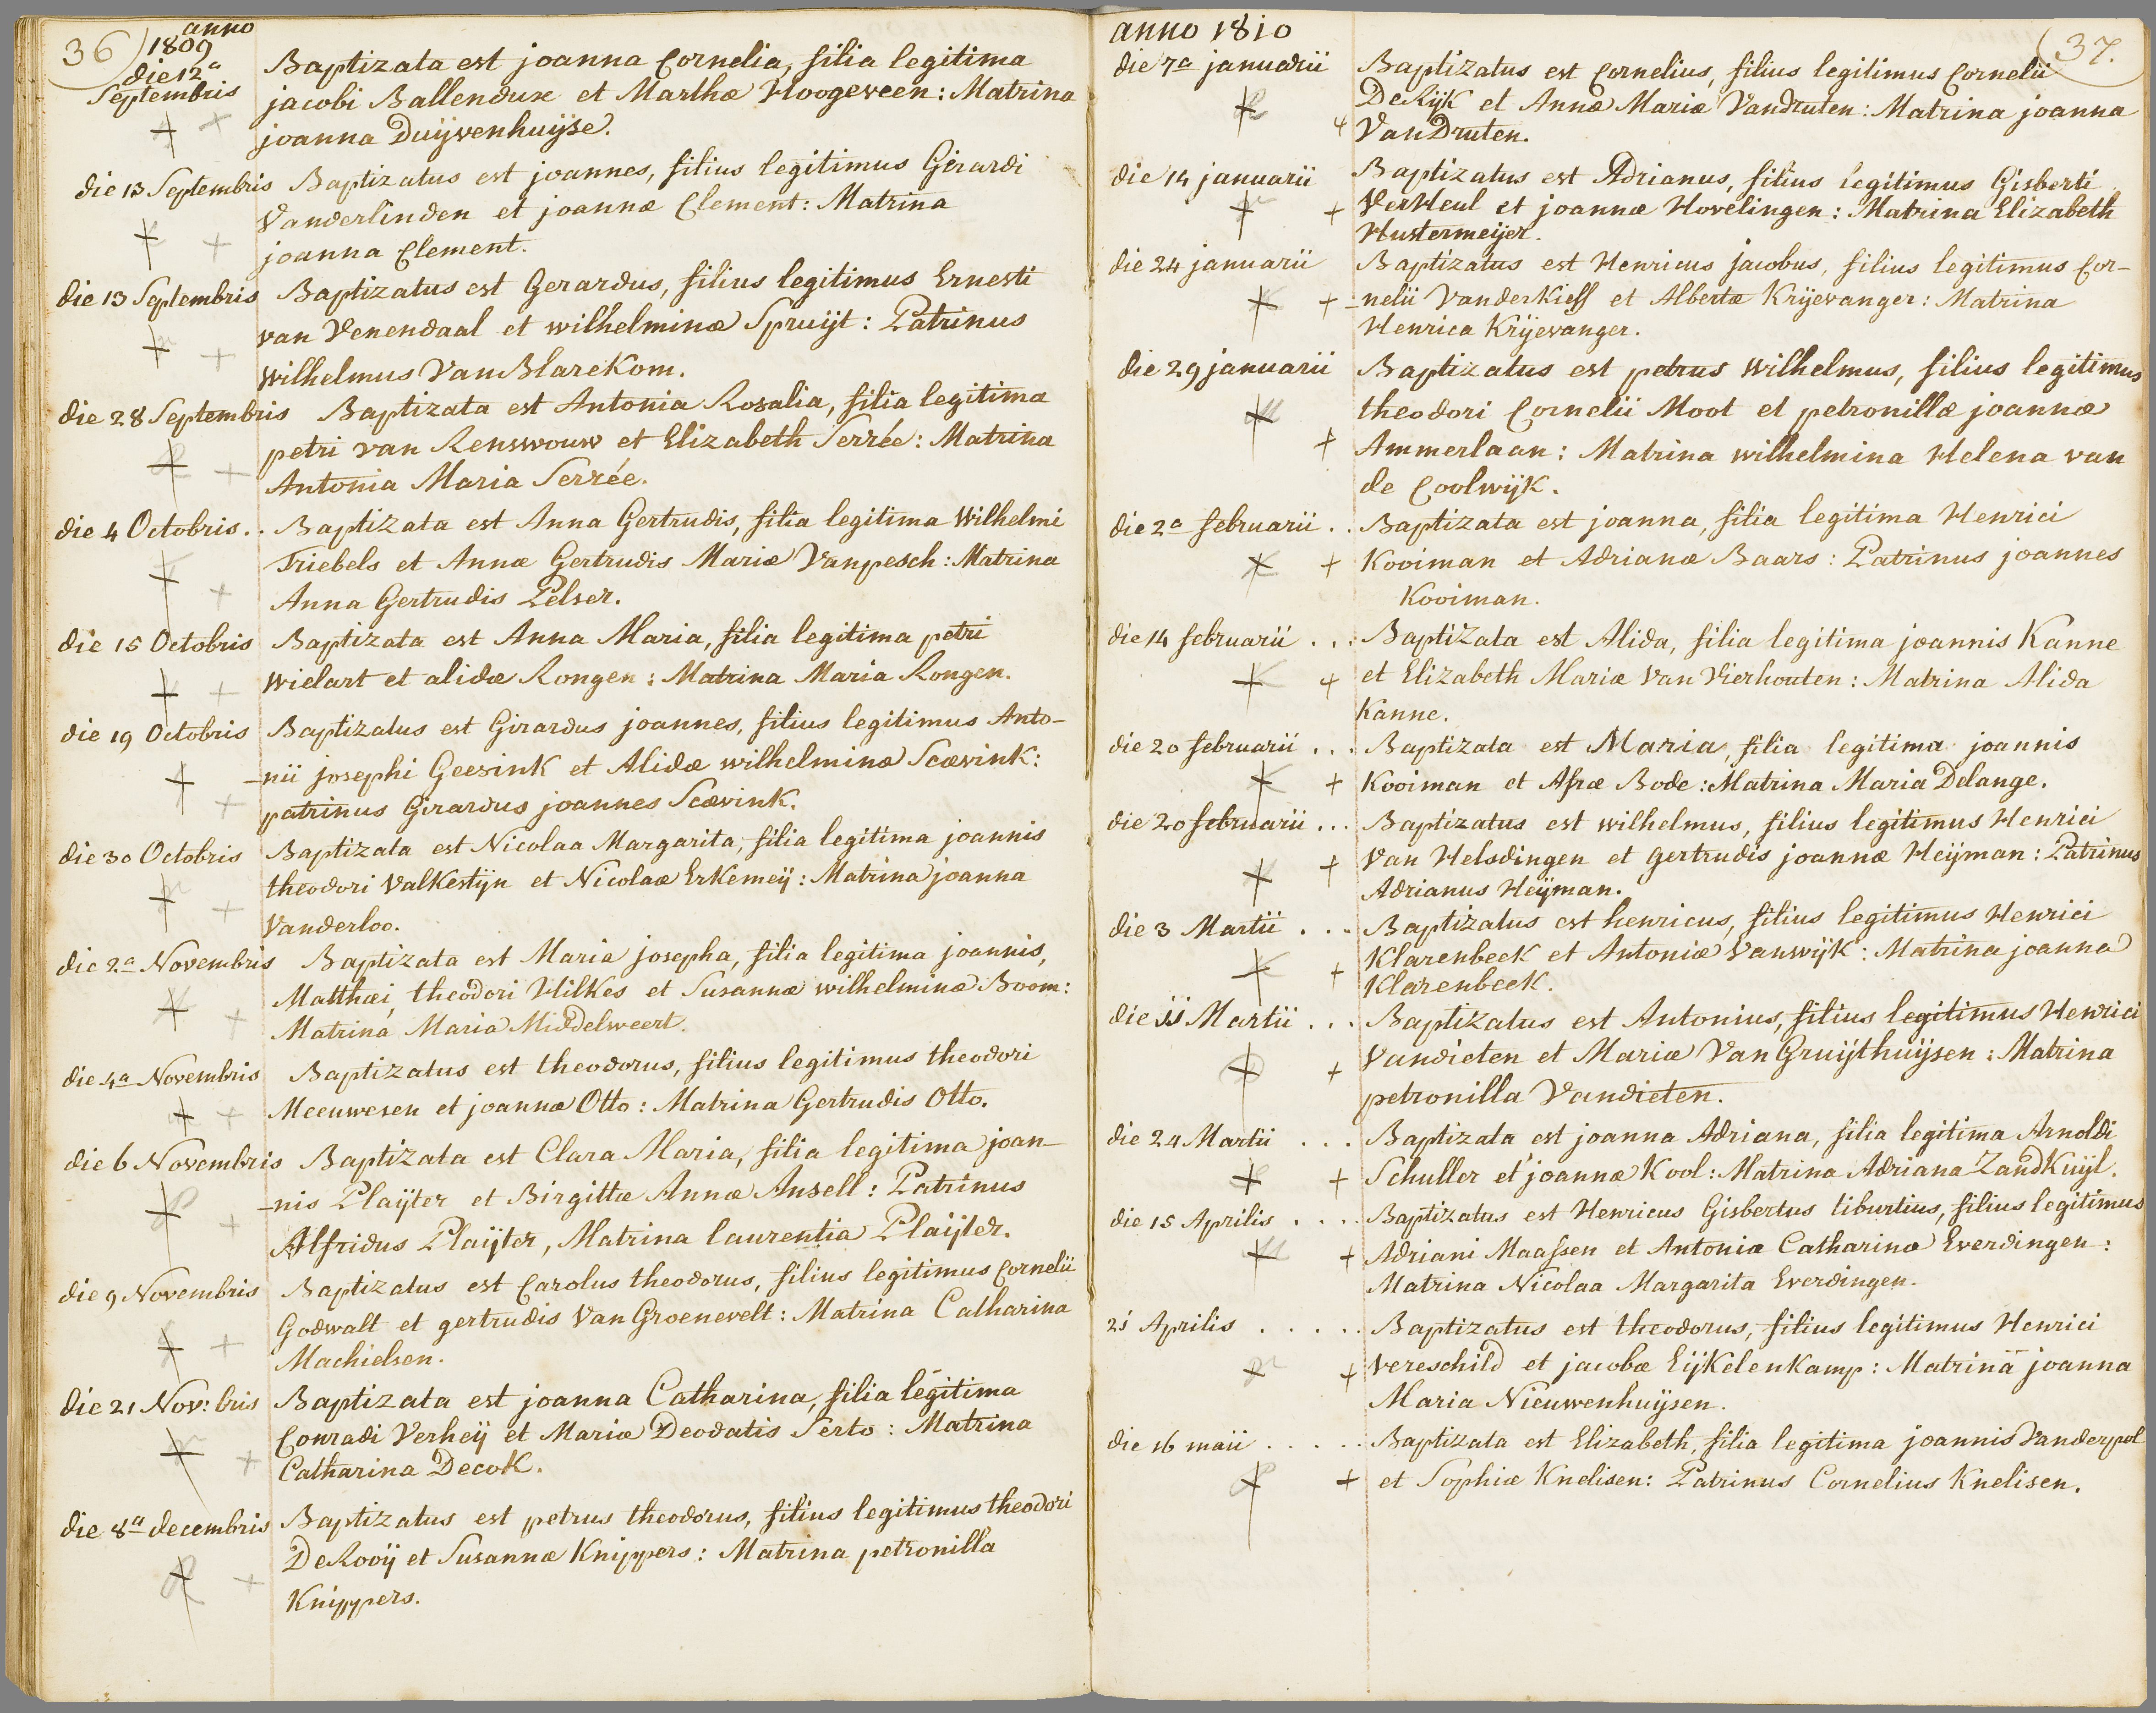 36
anno
1809
die 12a
Septembris
Baptizata est joanna Cornelia, filia legitima
jacobi Ballendux et Marthæ Hoogeveen: Matrina
joanna Duijvenhuijse.
die 13 Septembris Baptizatus est joannes, filius legitimus Girardi
Vanderlinden et joannæ Clement: Matrina
joanna Clement.
die 13 Septembris Baptizatus est Gerardus, filius legitimus Ernesti
van Venendaal et wilhelminæ Spruijt: Patrinus
Wilhelmus VanBlareKom.
die 28 Septembris Baptizata est Antonia Rosalia, filia legitima
petri van Renswouw et Elizabeth Serrée: Matrina
Antonia Maria Serrée.
die 4 Octobris.. Baptizata est Anna Gertrudis, filia legitima Wilhelmi
Triebels et Annæ Gertrudis Mariæ Vanpesch: Matrina
Anna Gertrudis Pelser.
die 15 Octobris Baptizata est Anna Maria, filia legitima petri
wielart et alidæ Rongen: Matrina Maria Rongen.
die 19 Octobris Baptizatus est Girardus joannes, filius legitimus Anto-
-nii josephi Geesink et Alidæ wilhelminæ Scævink:
patrinus Girardus joannes Scævink.
die 30 Octobris Baptizata est Nicolaa Margarita, filia legitima joannis
theodori Valkestijn et Nicolaæ Erkemeij: Matrina joanna
Vanderloo.
die 2a Novembris Baptizata est Maria josepha, filia legitima joannis,
Matthæi, theodori Hilkes et Susannæ wilhelminæ Boom:
Matrina Maria Middelweert.
die 4a Novembris Baptizatus est theodorus, filius legitimus theodori
Meeuwesen et joannæ Otto: Matrina Gertrudis Otto.
die 6 Novembris Baptizata est Clara Maria, filia legitima joan-
-nis Plaijter et Birgittæ Annæ Ansell: Patrinus
Alfridus Plaijter, Matrina laurentia Plaijter.
die 9 Novembris Baptizatus est Carolus theodorus, filius legitimus Cornelii
Godwalt et gertrudis Van Groenevelt: Matrina Catharina
Machielsen.
die 21 Nov: bris Baptizata est joanna Catharina, filia legitima
Conradi Verheij et Mariæ Deodatis Serto: Matrina
Catharina Decok.
die 8a decembris Baptizatus est petrus theodorus, filius legitimus theodori
DeRooij et Susannæ Knippers: Matrina petronilla
Knippers.
anno 1810
37.
die 7a januarii Baptizatus est Cornelius, filius legitimus Cornelii
DeRijk et Annæ Mariæ Vandruten: Matrina joanna
VanDruten.
die 14 januarii Baptizatus est Adrianus, filius legitimus Gisberti
VerHeul et joannæ Hovelingen: Matrina Elizabeth
Hustermeijer.
die 24 januarii Baptizatus est Henricus jacobus, filius legitimus Cor-
-nelii VanderKieff et Albertæ Krijevanger: Matrina
Henrica Krijevanger.
die 29 januarii Baptizatus est petrus Wilhelmus, filius legitimus
theodori Cornelii Moot et petronillæ joannæ
Ammerlaan: Matrina wilhelmina Helena van
de Coolwijk.
die 2a februarii.. Baptizata est joanna, filia legitima Henrici
Kooiman et Adrianæ Baars: Patrinus joannes
Kooiman.
die 14 februarii... Baptizata est Alida, filia legitima joannis Kanne
et Elizabeth Mariæ Van Vierhouten: Matrina Alida
Kanne.
die 20 februarii... Baptizata est Maria, filia legitima joannis
Kooiman et Afræ Bode: Matrina Maria Delange.
die 20 februarii... Baptizatus est wilhelmus, filius legitimus Henrici
Van Helsdingen et gertrudis joannæ Heijman: Patrinus
Adrianus Heijman.
die 3 Martii... Baptizatus est henricus, filius legitimus Henrici
Klarenbeek et Antoniæ Vanwijk: Matrina joanna
Klarenbeek.
die 11 Martii... Baptizatus est Antonius, filius legitimus Henrici
Vandieten et Mariæ Van Gruijthuijsen: Matrina
petronilla Vandieten.
die 24 Martii... Baptizata est joanna Adriana, filia legitima Arnoldi
Schuller et joannæ Kool: Matrina Adriana ZandKuijl.
die 15 Aprilis.... Baptizatus est Henricus Gisbertus tiburtius, filius legitimus
Adriani Maassen et Antoniæ Catharinæ Everdingen:
Matrina Nicolaa Margarita Everdingen.
21 Aprilis..... Baptizatus est theodorus, filius legitimus Henrici
vereschild et jacobæ EijKelenKamp: Matrina joanna
Maria Nieuwenhuijsen.
die 16 maii..... Baptizata est Elizabeth, filia legitima joannis Vanderpol
et Sophiæ Knelisen: Patrinus Cornelius Knelisen.